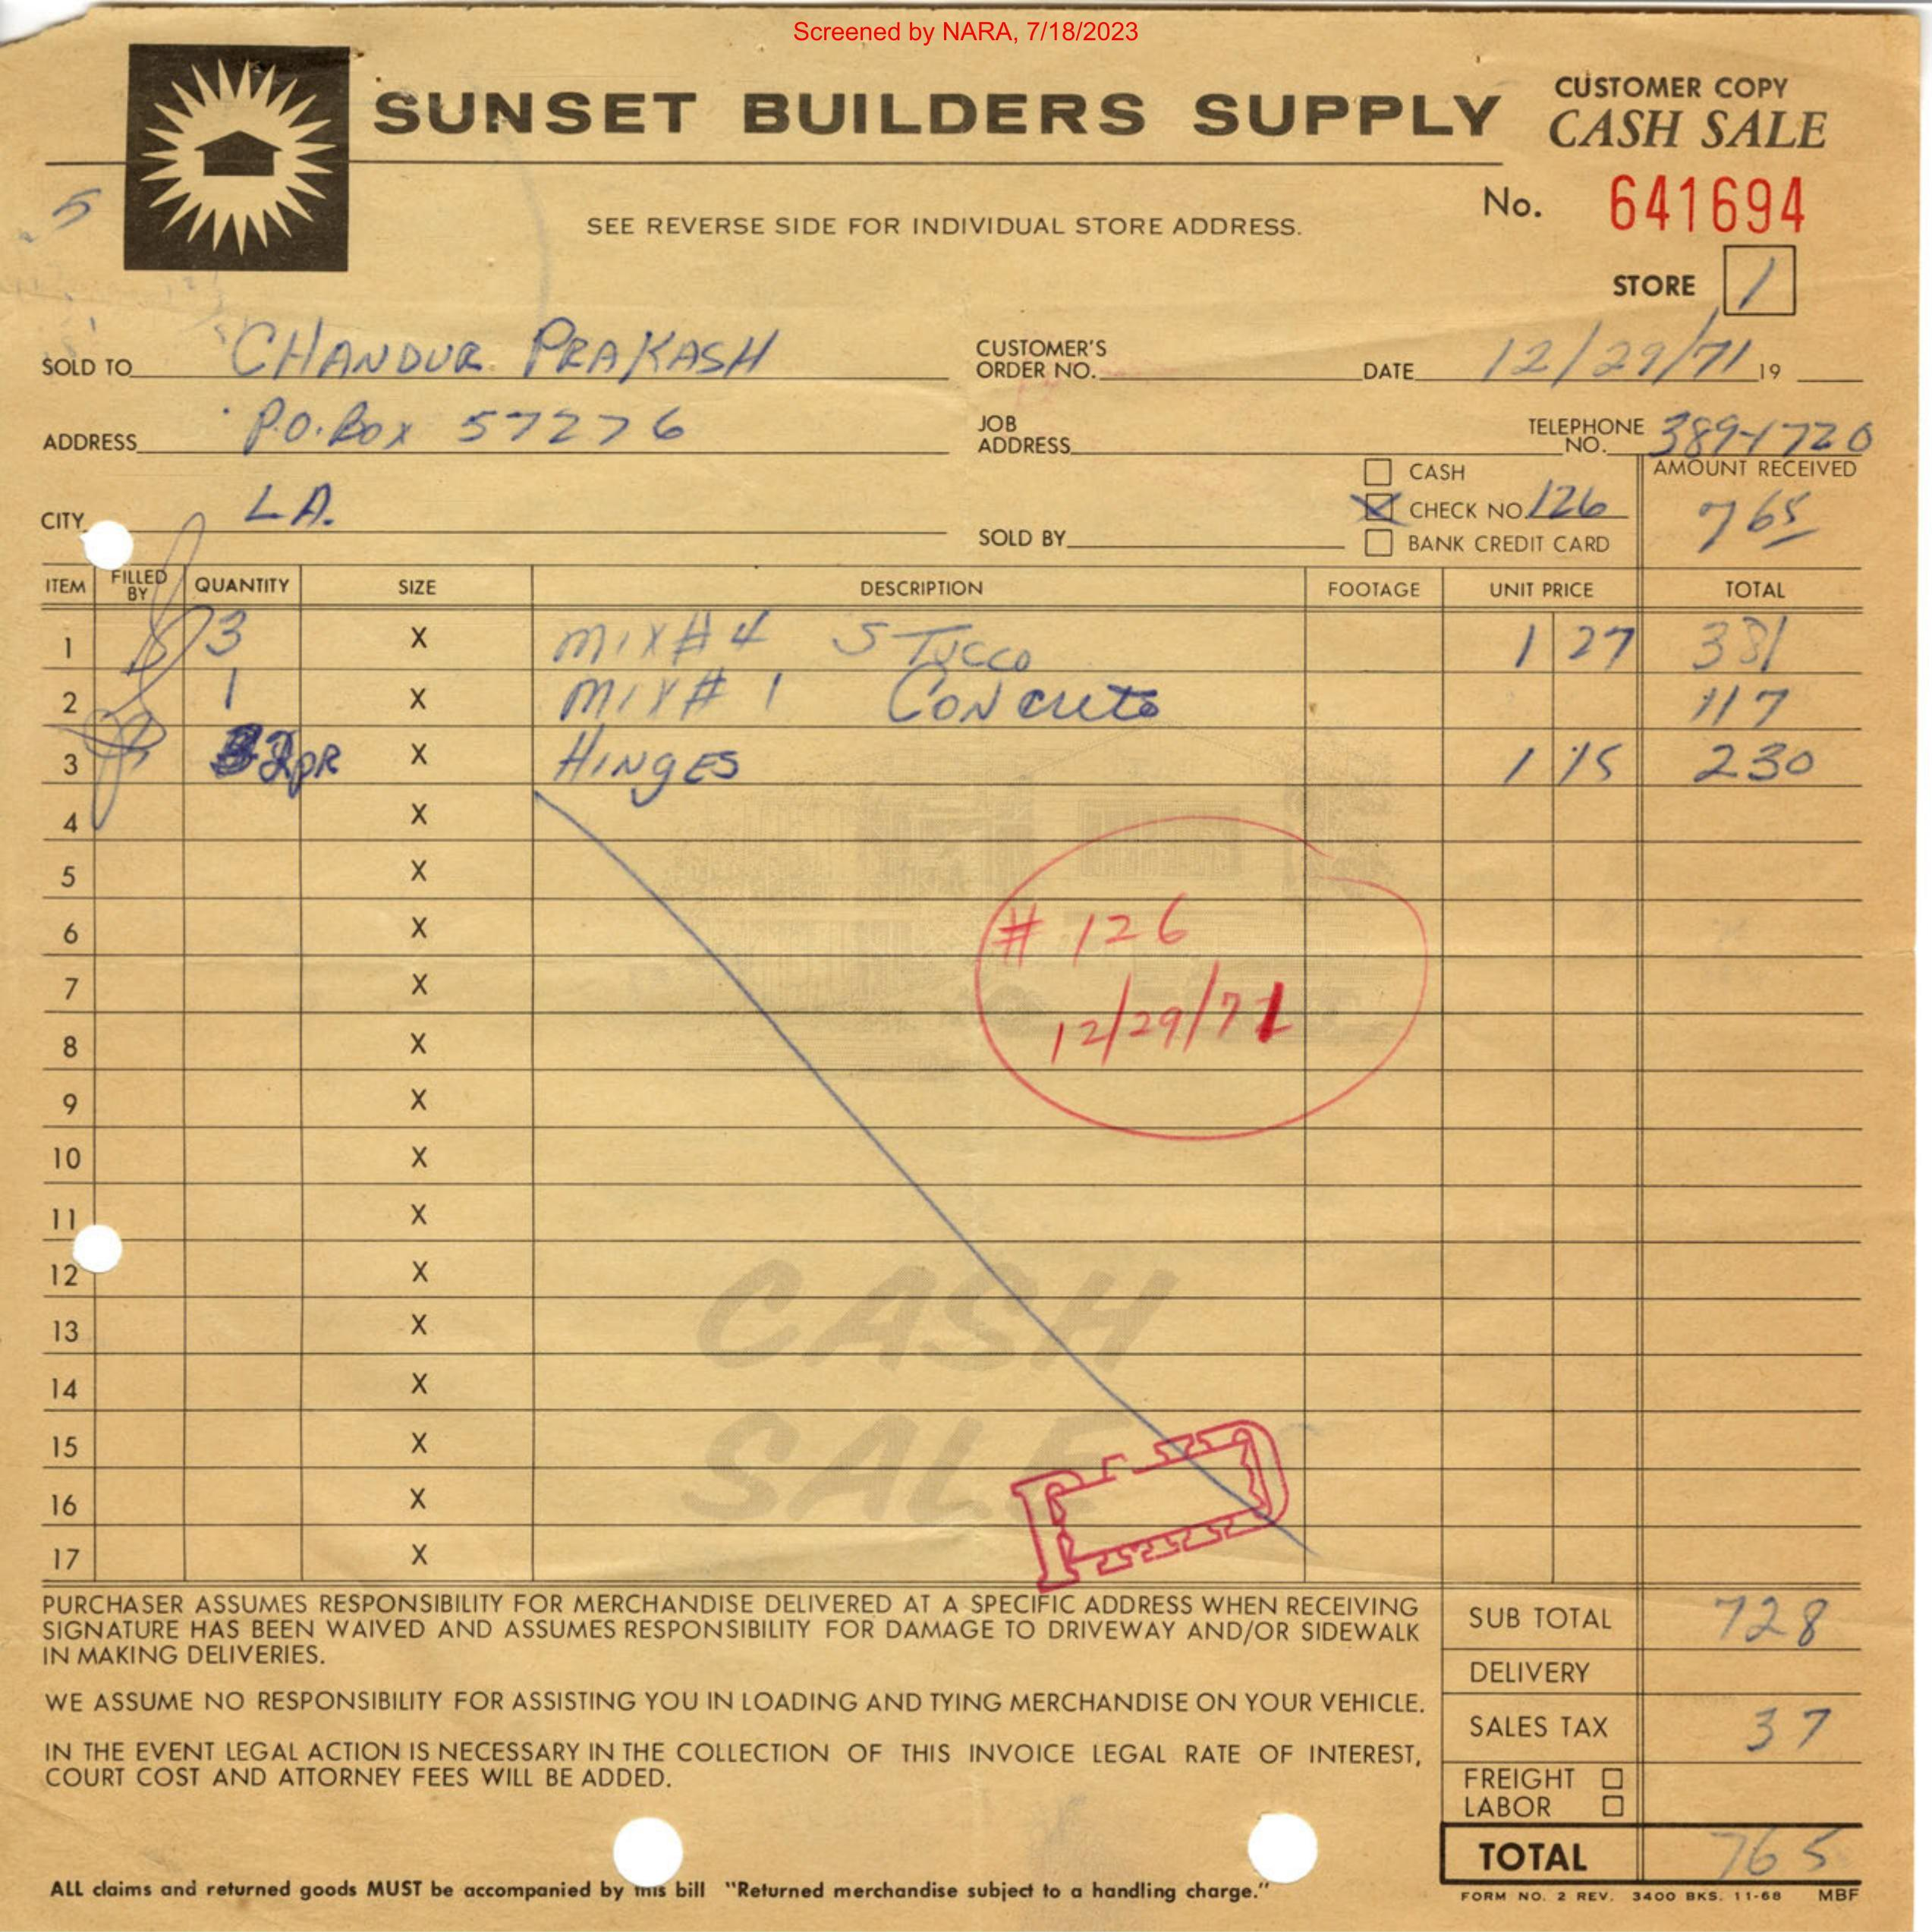 Screened by NARA, 7/18/2023
SUNSET BUILDERS SUPPLY
CUSTOMER COPY
CASH SALE
No. 641694
5
SEE REVERSE SIDE FOR INDIVIDUAL STORE ADDRESS.
STORE 1
SOLD TO CHANDUR PRAKASH
CUSTOMER'S ORDER NO.
DATE 12/29/71 19
ADDRESS P.O. Box 57276
JOB ADDRESS
TELEPHONE NO. 389-1720
CITY LA.
SOLD BY
CASH
CHECK NO. 126
BANK CREDIT CARD
AMOUNT RECEIVED
765
ITEM FILLED BY QUANTITY SIZE DESCRIPTION FOOTAGE UNIT PRICE TOTAL
1 3 X MIX # 4 STUCCO 1 27 381
2 1 X MIX # 1 CONCRETE 117
3 2pR X HINGES 1 15 230
4 X
5 X
6 X # 126
7 X
8 X 12/29/71
9 X
10 X
11 X
12 X
13 X CASH
14 X
15 X
16 X SALE
17 X
PURCHASER ASSUMES RESPONSIBILITY FOR MERCHANDISE DELIVERED AT A SPECIFIC ADDRESS WHEN RECEIVING
SIGNATURE HAS BEEN WAIVED AND ASSUMES RESPONSIBILITY FOR DAMAGE TO DRIVEWAY AND/OR SIDEWALK
IN MAKING DELIVERIES.
WE ASSUME NO RESPONSIBILITY FOR ASSISTING YOU IN LOADING AND TYING MERCHANDISE ON YOUR VEHICLE.
IN THE EVENT LEGAL ACTION IS NECESSARY IN THE COLLECTION OF THIS INVOICE LEGAL RATE OF INTEREST,
COURT COST AND ATTORNEY FEES WILL BE ADDED.
SUB TOTAL 728
DELIVERY
SALES TAX 37
FREIGHT
LABOR
TOTAL 765
ALL claims and returned goods MUST be accompanied by this bill "Returned merchandise subject to a handling charge."
FORM NO. 2 REV. 3400 BKS. 11-68 MBF